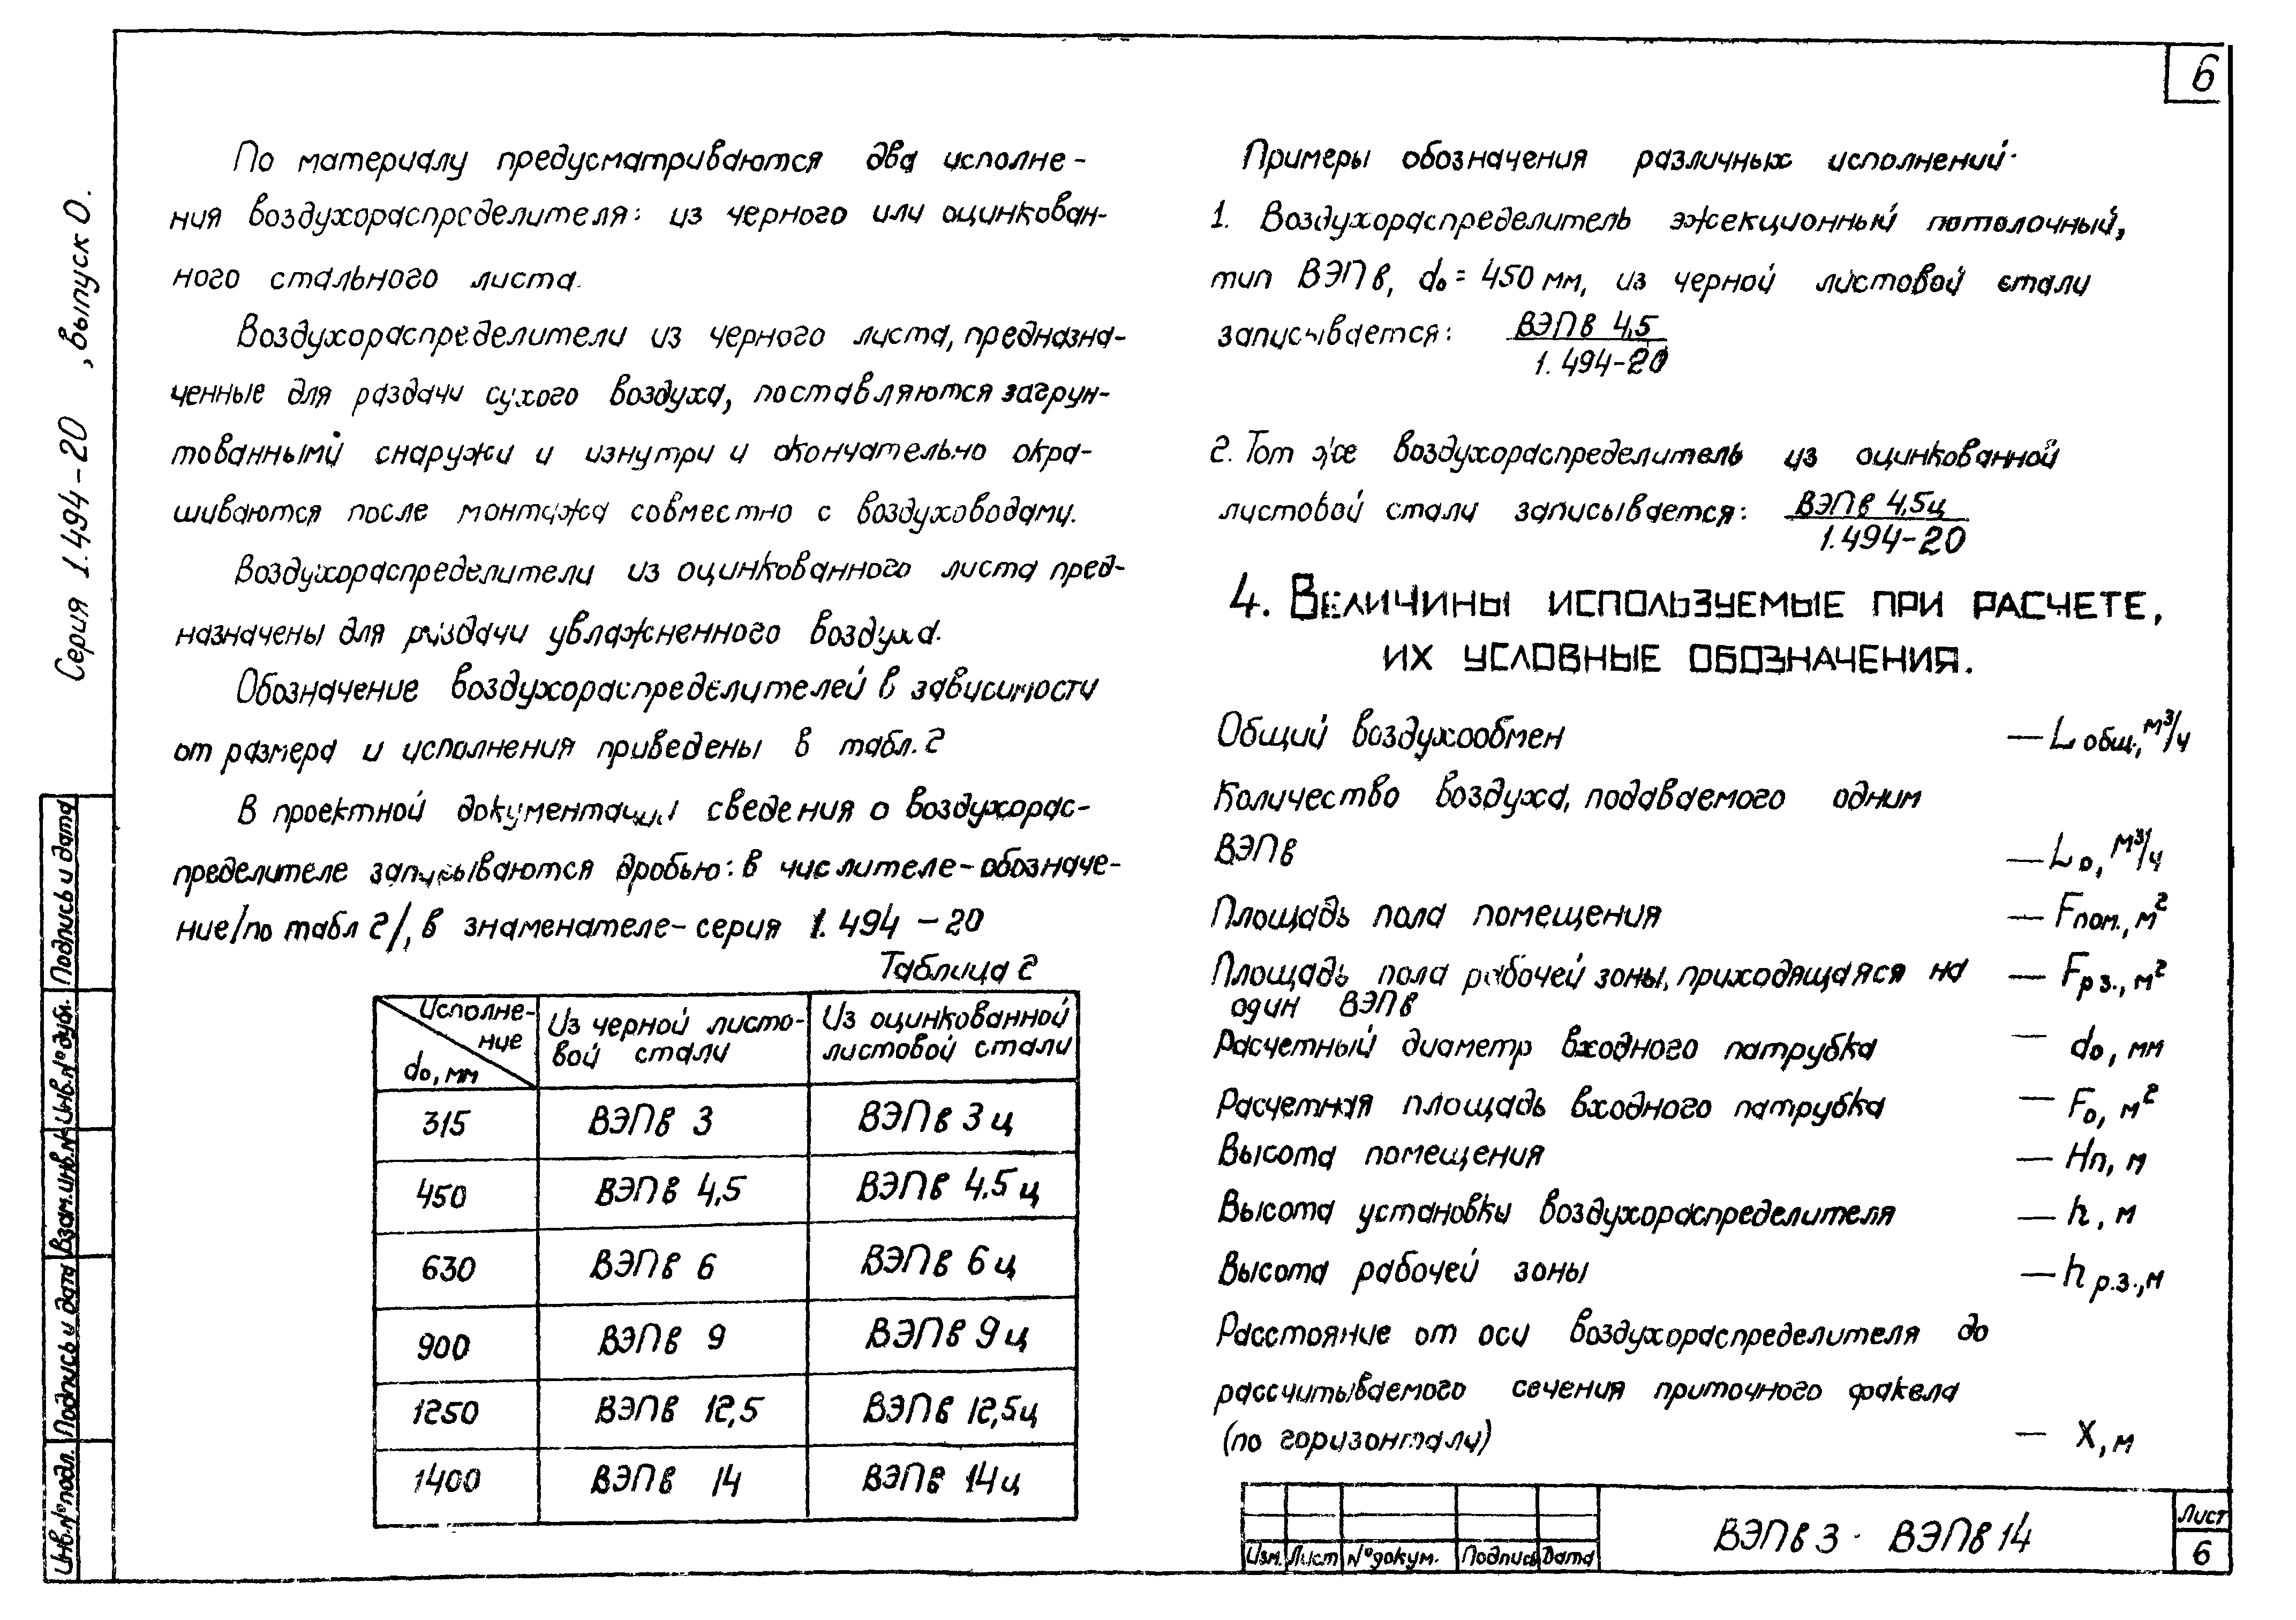 6
По материалу предусматриваются два исполне-
ния воздухораспределителя: из черного или оцинкован-
ного стального листа.
Воздухораспределители из черного листа, предназна-
ченные для раздачи сухого воздуха, поставляются загрун-
тованными снаружи и изнутри и окончательно окра-
шиваются после монтажа совместно с воздуховодами.
Воздухораспределители из оцинкованного листа пред-
назначены для раздачи увлажненного воздуха.
Обозначение воздухораспределителей в зависимости
от размера и исполнения приведены в табл. 2
В проектной документации сведения о воздухорас-
пределителе записываются дробью: в числителе - обозначе-
ние /по табл 2/, в знаменателе - серия 1.494-20
Таблица 2
Исполне-
ние
d₀, мм
Из черной листо-
вой стали
Из оцинкованной
листовой стали
315 ВЭПв 3 ВЭПв 3ц
450 ВЭПв 4,5 ВЭПв 4.5ц
630 ВЭПв 6 ВЭПв 6ц
900 ВЭПв 9 ВЭПв 9ц
1250 ВЭПв 12,5 ВЭПв 12,5ц
1400 ВЭПв 14 ВЭПв 14ц
Примеры обозначения различных исполнений.
1. Воздухораспределитель эжекционный потолочный,
тип ВЭПв, d₀ = 450 мм, из черной листовой стали
записывается: ВЭПв 4,5
1.494-20
2. Тот же воздухораспределитель из оцинкованной
листовой стали записывается: ВЭПв 4.5ц
1.494-20
4. ВЕЛИЧИНЫ ИСПОЛЬЗУЕМЫЕ ПРИ РАСЧЕТЕ,
ИХ УСЛОВНЫЕ ОБОЗНАЧЕНИЯ.
Общий воздухообмен — L общ., м³/ч
Количество воздуха, подаваемого одним
ВЭПв — L₀, м³/ч
Площадь пола помещения — Fпом., м²
Площадь пола рабочей зоны, приходящаяся на — Fрз., м²
один ВЭПв
Расчетный диаметр входного патрубка — d₀, мм
Расчетная площадь входного патрубка — F₀, м²
Высота помещения — Нп, м
Высота установки воздухораспределителя — h, м
Высота рабочей зоны — h р.з., м
Расстояние от оси воздухораспределителя до
рассчитываемого сечения приточного факела
(по горизонтали) — X, м
Изм. Лист №докум. Подпись Дата
ВЭПв 3 - ВЭПв 14
Лист
6
Серия 1.494-20 , выпуск 0.
Инв.№подл. Подпись и дата Взам.инв.№ Инв.№дубл. Подпись и дата